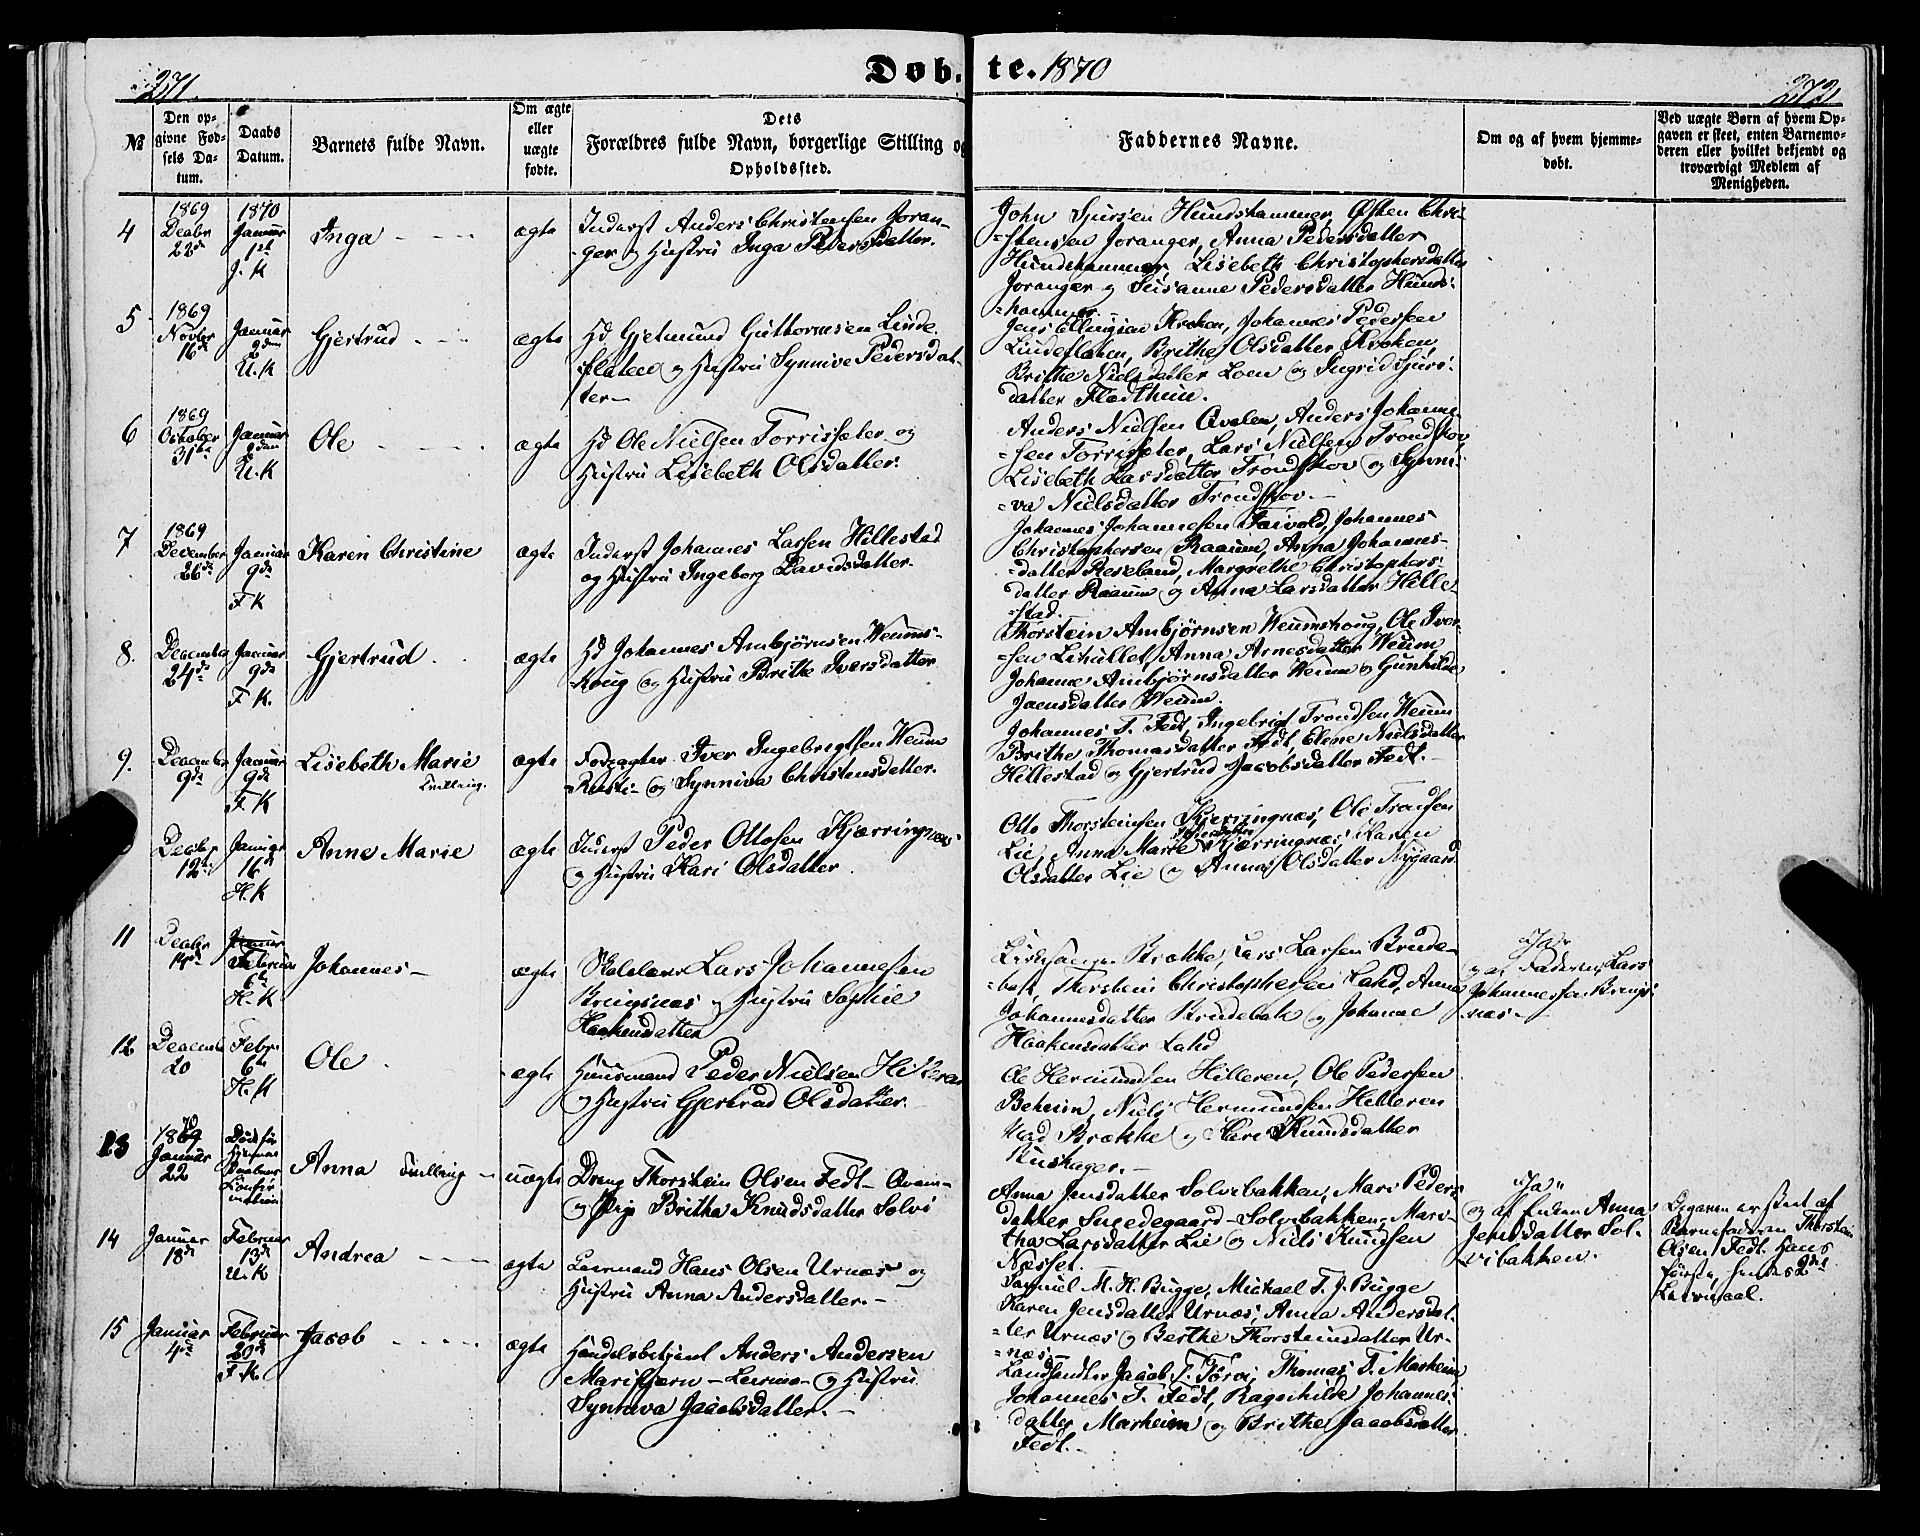 271.
Døb-te. 1870
272
№
Den opgivne Fødsels Datum.
Daabs Datum.
Barnets fulde Navn.
Om ægte eller uægte fødte.
Dets Forældres fulde Navn, borgerlige Stilling og Opholdssted.
Faddernes Navne.
Om og af hvem hjemmedøbt.
Ved uægte Børn af hvem Opgaven er skeet, enten Barnemoderen eller hvilket bekjendt og troværdigt Medlem af Menigheden.
4
1869
Decbr
22de
1870
Januar
1st
J. K
Inga
ægte
Inderst Anders Christensen Joran-
-ger og Hustru Inga Pedersdatter.
John Sjursen Hundshammer, Østen Chri-
-stensen Joranger, Anna Pedersdatter
Hundshammer, Lisebeth Christophersdatter
Joranger og Susanne Pedersdatter Hunds-
-hammer.
5
1869
Novbr
16de
Januar
2den
U. K
Gjertrud
ægte
Hd Gjetmund Guttormsen Linde-
flaten og Hustru Synnive Pedersdat-
ter
Jens Ellingsen Kroken, Johannes Pedersen
Lindeflaten, Brithe Olsdatter Kroken,
Brithe Nielsdatter Loen og Ingrid Sjurs-
datter Flødthun.
6
1869
October
31te
Januar
2den
U. K
Ole
ægte
Hd Ole Nielsen Torrissæter og
Hustru Lisebeth Olsdatter.
Anders Nielsen Qvalen, Anders Johanne-
-sen Torrisæter, Lars Nielsen Trondskov,
Lisebeth Larsdatter Trondskov og Synni-
-va Nielsdatter Trondskov.
7
1869
December
26de
Januar
9de
F K
Karen Christine
ægte
Inderst Johannes Larsen Hillestad
og Hustru Ingeborg Davidsdatter.
Johannes Johannesen Faivold, Johannes
Christophersen Raaum, Anna Johannes-
-datter Røseland, Margrethe Christophers-
datter Raaum og Anna Larsdatter Hille-
-stad.
8.
December
24de
Januar
9de
F K.
Gjertrud
ægte
Hd Johannes Ambjørnsen Weums-
-houg og Hustru Brithe Iversdatter
Thorstein Ambjørnsen Weumshoug, Ole Iver-
-sen Lihullet, Anna Arnesdatter Weum
Johanne Ambjørnsdatter Weum og Gunhilde
Jensdatter Weum.
9.
December
9de
Januar
9de
F K
Lisebeth Marie
Tvilling.
ægte
Forpagter Iver Ingebrigtsen Weum
og Synniva Christensdatter.
Johannes T. Fedt, Ingebrigt Trondsen Weum
Brithe Thomasdatter Fedt, Elene Nielsdatter
Hillestad og Gjertrud Jacobsdatter Fedt.
Decbr
12te
Januar
16de
H. K
Anne Marie
ægte
Inderst Peder Ottosen Kjærringnæs
og Hustru Kari Olsdatter
Otto Thorsteinsen Kjerringnæs, Ole Tronsen
Lie, Anna Marie Kjærringnæs, Karen
Olsdatter Lie og Anna Olsdatter Nygaard
11
Decbr
Januar
Februar
6te
H. K
Johannes
ægte
Lars Johannesen
og Hustru Sophie
Haakensdatter
Brække, Lars Larsen Brude-
-bak, Thorstein Christophersen Lahd, Anna
Johannesdatter Brudebak og Johanne
Haakensdatter Lahd
Ja
og af Faderen, Lars
Johannesen
-næs
12
20
Febr.
6te
H. K
Ole
ægte
Huusmand Peder Nielsen Hilleren
og Hustru Gjertrud Olsdatter.
Ole Hermundsen Hilleren, Ole Pedersen
Beheim, Niels Hermundsen Hilleren
Brække og Kari Knudsdatter
13
1869
70
Januar
22
Anna
Tvilling
uægte
Dreng Thorstein Olsen Fedt
og Pige Britha Knudsdatter Solvi
Anna Jensdatter Solvibakken, Mari Peders-
datter Smedegaard Solvibakken, Mar-
tha Larsdatter Lie og Niels Knudsen
Næsset.
Ja
og af Enken Anna
Jensdatter Sol-
vibakken.
Opgaven er skeet af
Barnefaderen Thorstein
Olsen Fedt. Hans
første, hendes 2det
Leiermaal.
14
Januar
18de
Februar
13de
U. K
Andrea
ægte
Leermand Hans Olsen Urnæs og
Hustru Anna Andersdatter.
Samuel M. H. Bugge, Michael T. J. Bugge
Karen Jensdatter Urnæs, Anna Andersdat-
-ter Urnæs og Berthe Thorsteinsdatter Ur-
-næs
15
Januar
4de
Februar
20de
F. K.
Jacob
ægte
Handelsbetjent Anders Andersen
Marifjæren og Hustru
Synneva Jacobsdatter.
Jacob T. Tørvi, Thomas T. Marheim
Johannes T. Fedt, Ragnhilde Johannes-
datter Marheim og Brithe Jacobsdatter
Fedt.